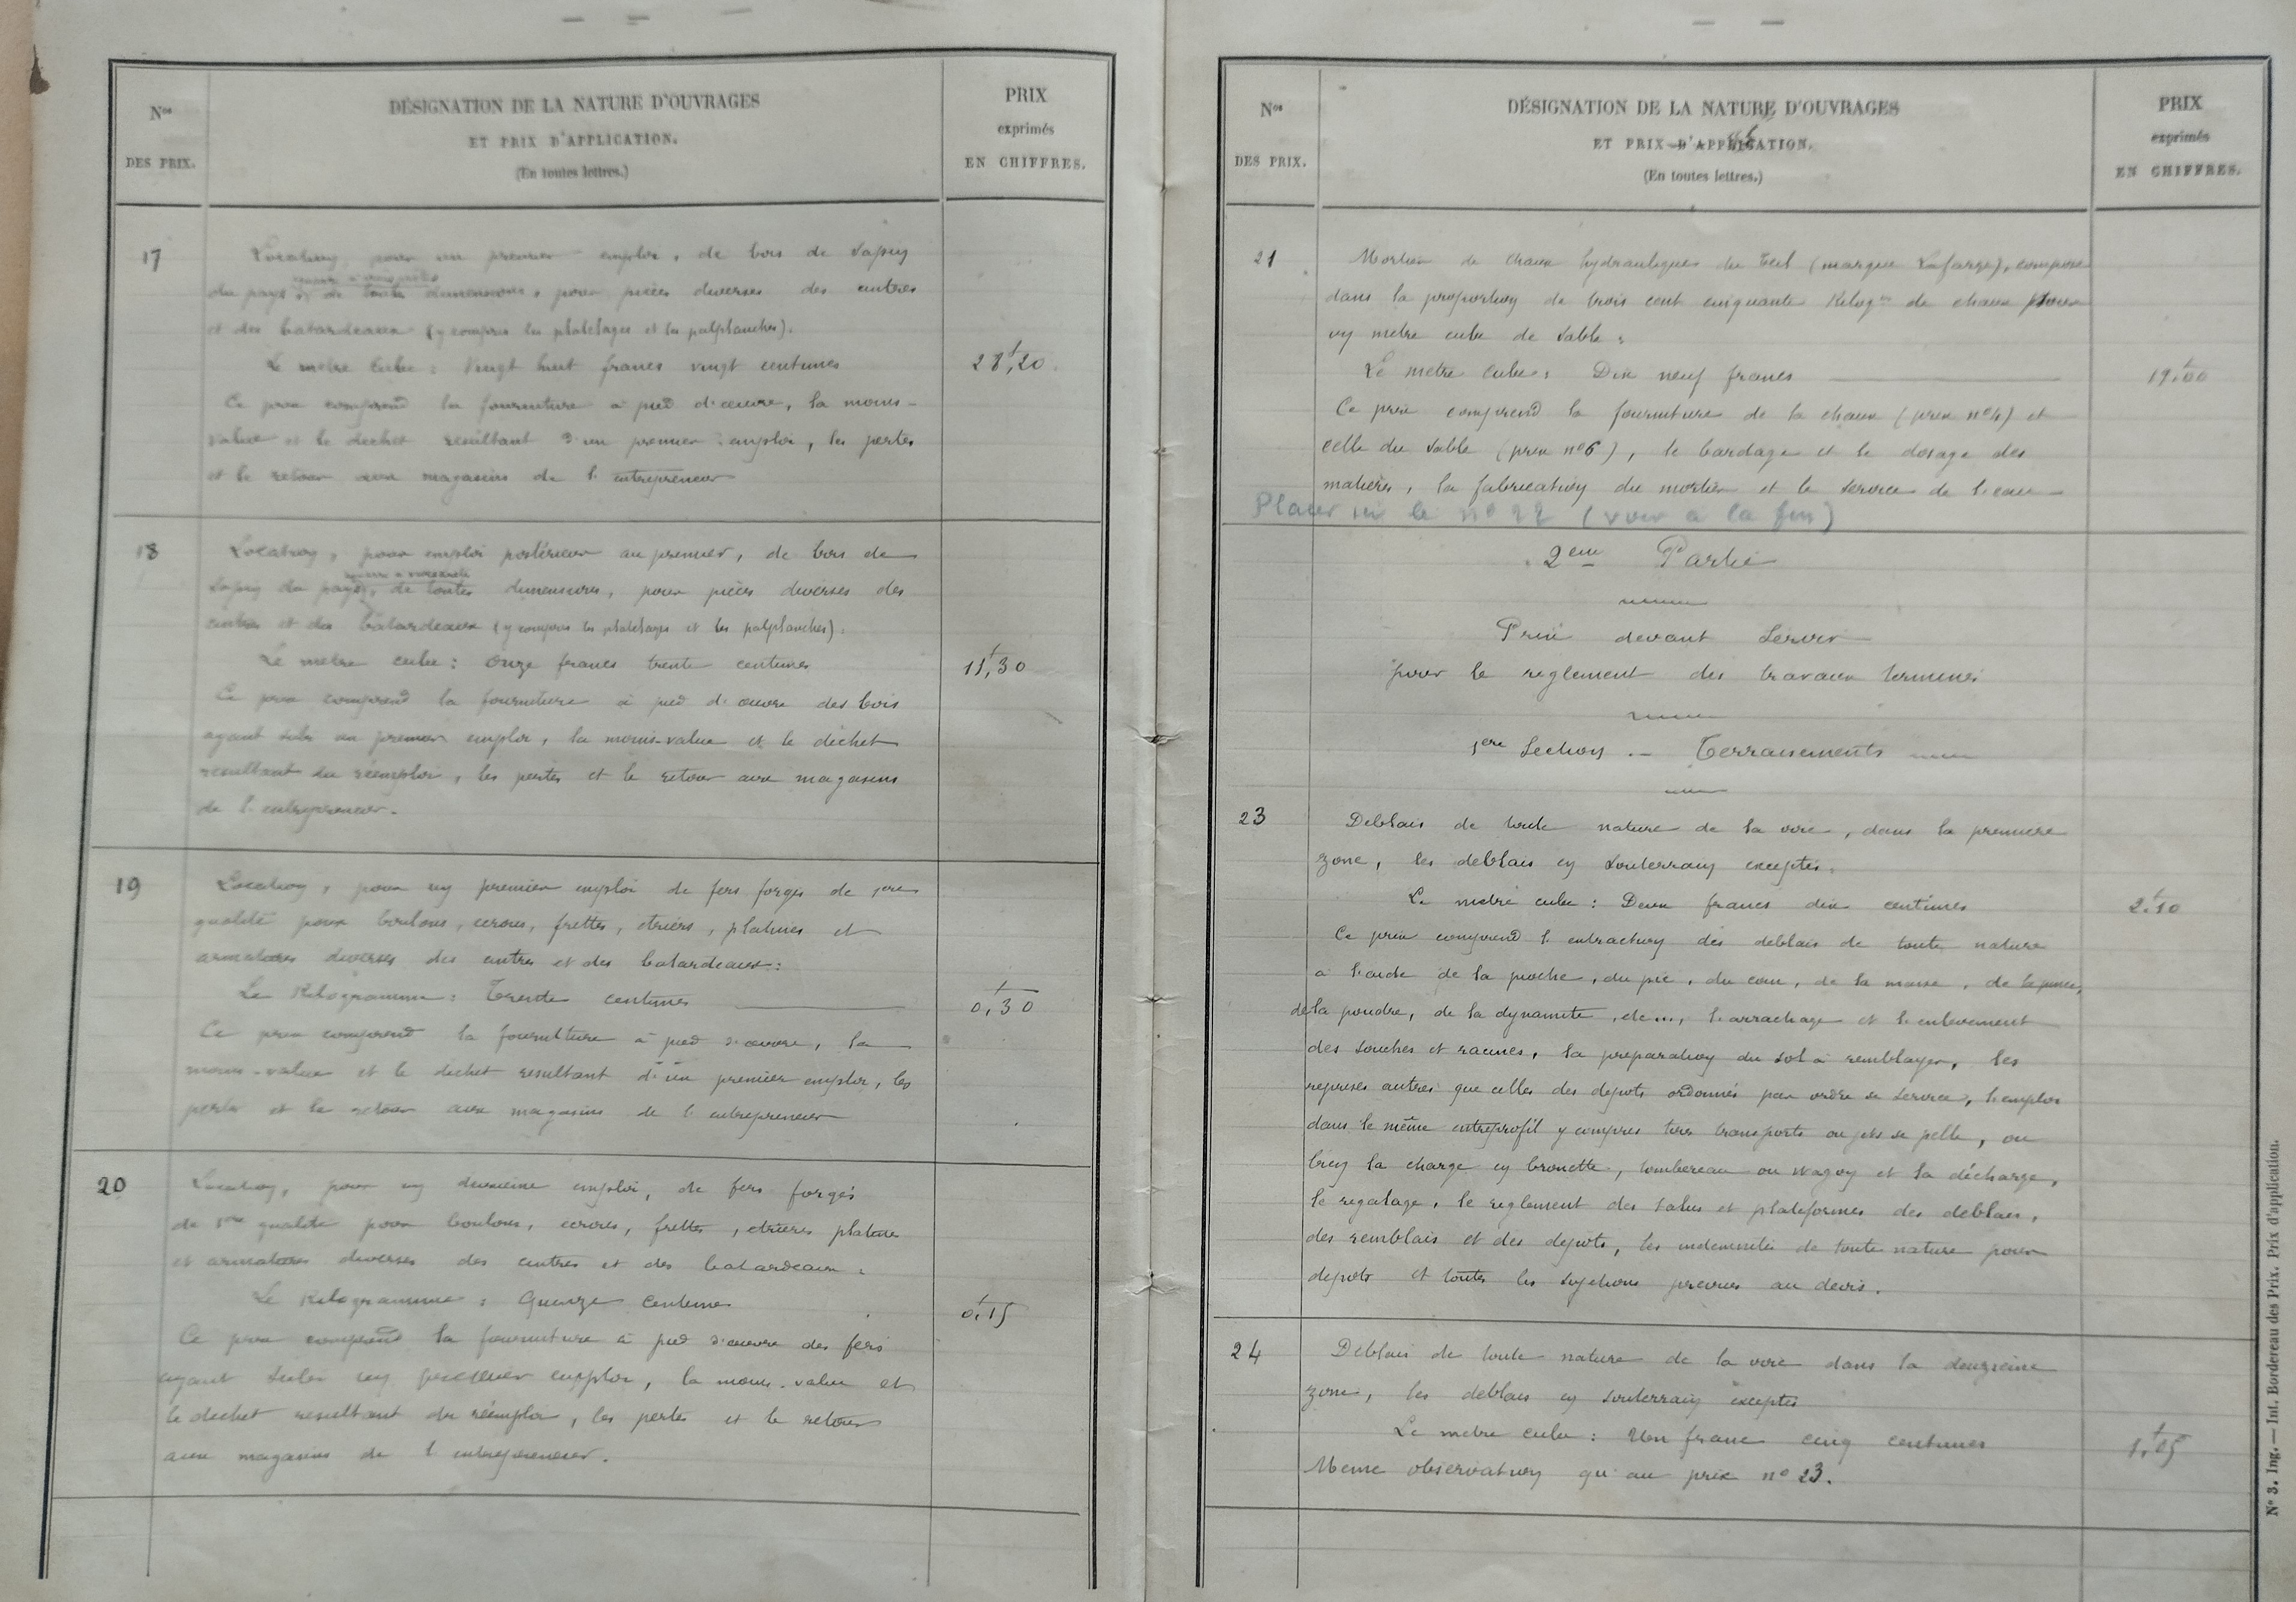 Nos
DES PRIX.
DÉSIGNATION DE LA NATURE D'OUVRAGES
ET PRIX D'APPLICATION.
(En toutes lettres.)
PRIX
exprimés
EN CHIFFRES.
17
Location, pour un premier emploi, de bois de sapin
du pays, de toutes dimensions, pour pièces diverses des cintres
et des batardeaux (y compris les platelages et les palplanches).
Le mètre cube : Vingt huit francs vingt centimes
28f,20
Ce prix comprend la fourniture à pied d'œuvre, la moins-
value et le déchet résultant d'un premier emploi, les pertes
et le retour aux magasins de l'entrepreneur
18
Location, pour emploi postérieur au premier, de bois de
sapin du pays, de toutes dimensions, pour pièces diverses des
cintres et des batardeaux (y compris les platelages et les palplanches) :
Le mètre cube : Onze francs trente centimes
11f,30
Ce prix comprend la fourniture à pied d'œuvre des bois
ayant subi un premier emploi, la moins-value et le déchet
résultant du réemploi, les pertes et le retour aux magasins
de l'entrepreneur.
19
Location, pour un premier emploi de fers forgés de 1ere
qualité pour boulons, écrous, frettes, étriers, platines et
armatures diverses des cintres et des batardeaux :
Le Kilogramme : Trente centimes
0f,30
Ce prix comprend la fourniture à pied d'œuvre, la
moins-value et le déchet résultant d'un premier emploi, les
pertes et le retour aux magasins de l'entrepreneur
20
Location, pour un deuxième emploi, de fers forgés
de 1ere qualité pour boulons, écrous, frettes, étriers platines
et armatures diverses des cintres et des batardeaux :
Le Kilogramme : Quinze centimes
0f,15
Ce prix comprend la fourniture à pied d'œuvre des fers
ayant subi un premier emploi, la moins-value et
le déchet résultant du réemploi, les pertes et le retour
aux magasins de l'entrepreneur.
Nos
DES PRIX.
DÉSIGNATION DE LA NATURE D'OUVRAGES
ET PRIX D'APPLICATION.
(En toutes lettres.)
PRIX
exprimés
EN CHIFFRES.
21
Mortier de chaux hydrauliques du Teil (marque Lafarge), composé
dans la proportion de trois cent cinquante Kilog.es de chaux pour
un mètre cube de sable :
Le mètre cube : Dix neuf francs
19f,00
Ce prix comprend la fourniture de la chaux (prix n°4) et
celle du sable (prix n°6), le bardage et le dosage des
matières, la fabrication du mortier et le service de l'eau
Placer ici le n° 22 (voir à la fin)
2eme Partie
Prix devant servir
pour le règlement des travaux terminés
1ere Section .- Terrassements
23
Déblais de toute nature de la voie, dans la première
zone, les déblais en souterrain exceptés.
Le mètre cube : Deux francs dix centimes
2f,10
Ce prix comprend l'extraction des déblais de toute nature
à l'aide de la pioche, du pic, du coin, de la masse, de la pince,
de la poudre, de la dynamite, etc..., l'arrachage et l'enlèvement
des souches et racines, la préparation du sol à remblayer, les
reprises autres que celles des dépôts ordonnés par ordre de service, l'emploi
dans le même entreprofil y compris tous transports ou jets de pelle, ou
bien la charge en brouette, tombereau ou wagon et la décharge,
le regalage, le règlement des talus et plateformes des déblais,
des remblais et des dépôts, les indemnités de toute nature pour
dépôts et toutes les sujétions prévues au devis.
24
Déblais de toute nature de la voie dans la deuxième
zone, les déblais en souterrain exceptés
Le mètre cube : Un franc cinq centimes
1f,05
Meme observation qu'au prix n° 23.
N° 3. Ing. — Int. Bordereau des Prix. Prix d'application.